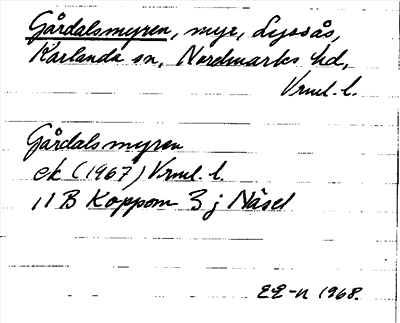 Gårdalsmyren, myr, Lysvås,
Karlanda sn, Nordmarks hd,
Vrml. l.
Gårdalsmyren
ek (1967) Vrml. l.
11B Koppom 3 j Näsel
EE-n 1968.